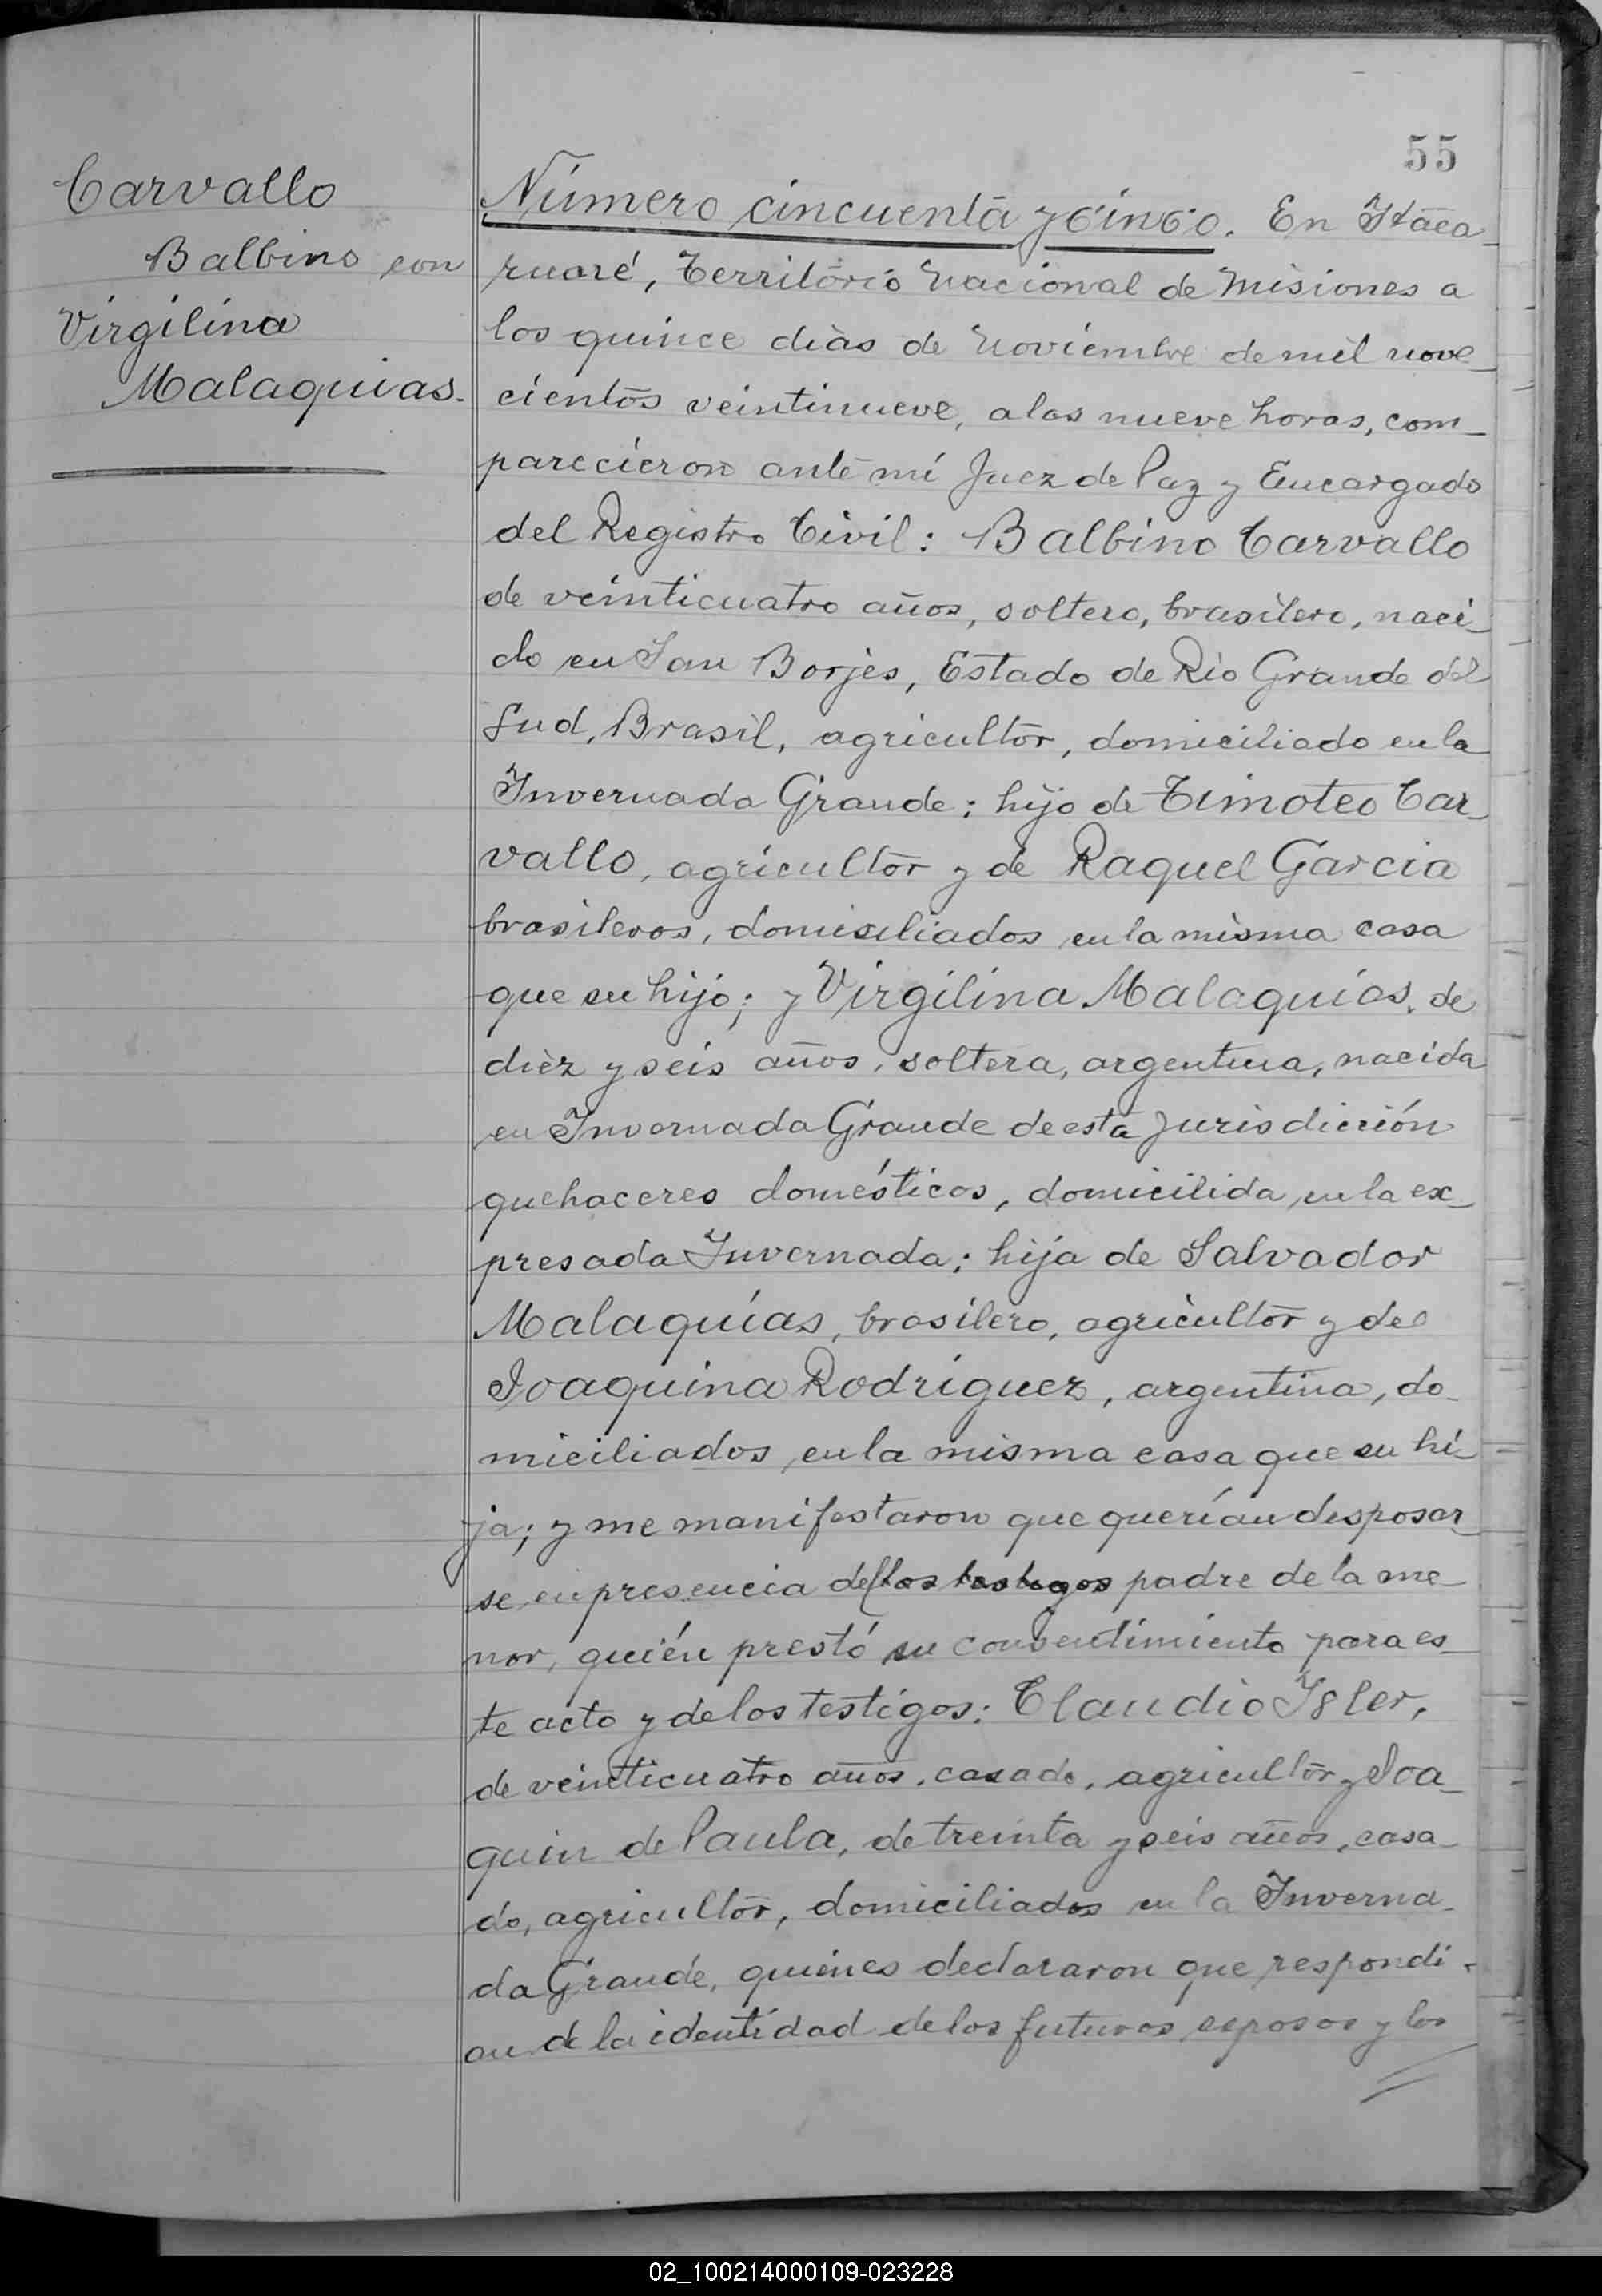 55
Carvallo
Balbino con
Virgilina
Malaquias.
Número cincuenta y cinco. En Itaca-
ruaré, Territorio Nacional de Misiones a
los quince dias de Noviembre de mil nove-
cientos veintinueve, a las nueve horas, com-
parecieron ante mí Juez de Paz y Encargado
del Registro Civil: Balbino Carvallo
de veinticuatro años, soltero, brasilero, naci-
do en San Borjes, Estado de Rio Grande del
Sud, Brasil, agricultor, domiciliado en la
Invernada Grande: hijo de Timoteo Car-
vallo, agricultor y de Raquel Garcia
brasileros, domiciliados en la misma casa
que su hijo; y Virgilina Malaquías, de
diez y seis años, soltera, argentina, nacida
en Invernada Grande de esta Jurisdicción
quehaceres domésticos, domicilida en la ex-
presada Invernada: hija de Salvador
Malaquías, brasilero, agricultor y de
Joaquina Rodriguez, argentina, do-
miciliados en la misma casa que su hi-
ja; y me manifestaron que querían desposar-
se en presencia de los testigos padre de la me-
nor, quién prestó su consentimiento para es-
te acto y de los testigos: Claudio Isler,
de veinticuatro años, casado, agricultor y Joa-
quin de Paula, de treinta y seis años, casa-
do, agricultor, domiciliados en la Inverna-
da Grande, quienes declararon que respondi-
an de la identidad de los futuros esposos y los
02_100214000109-023228